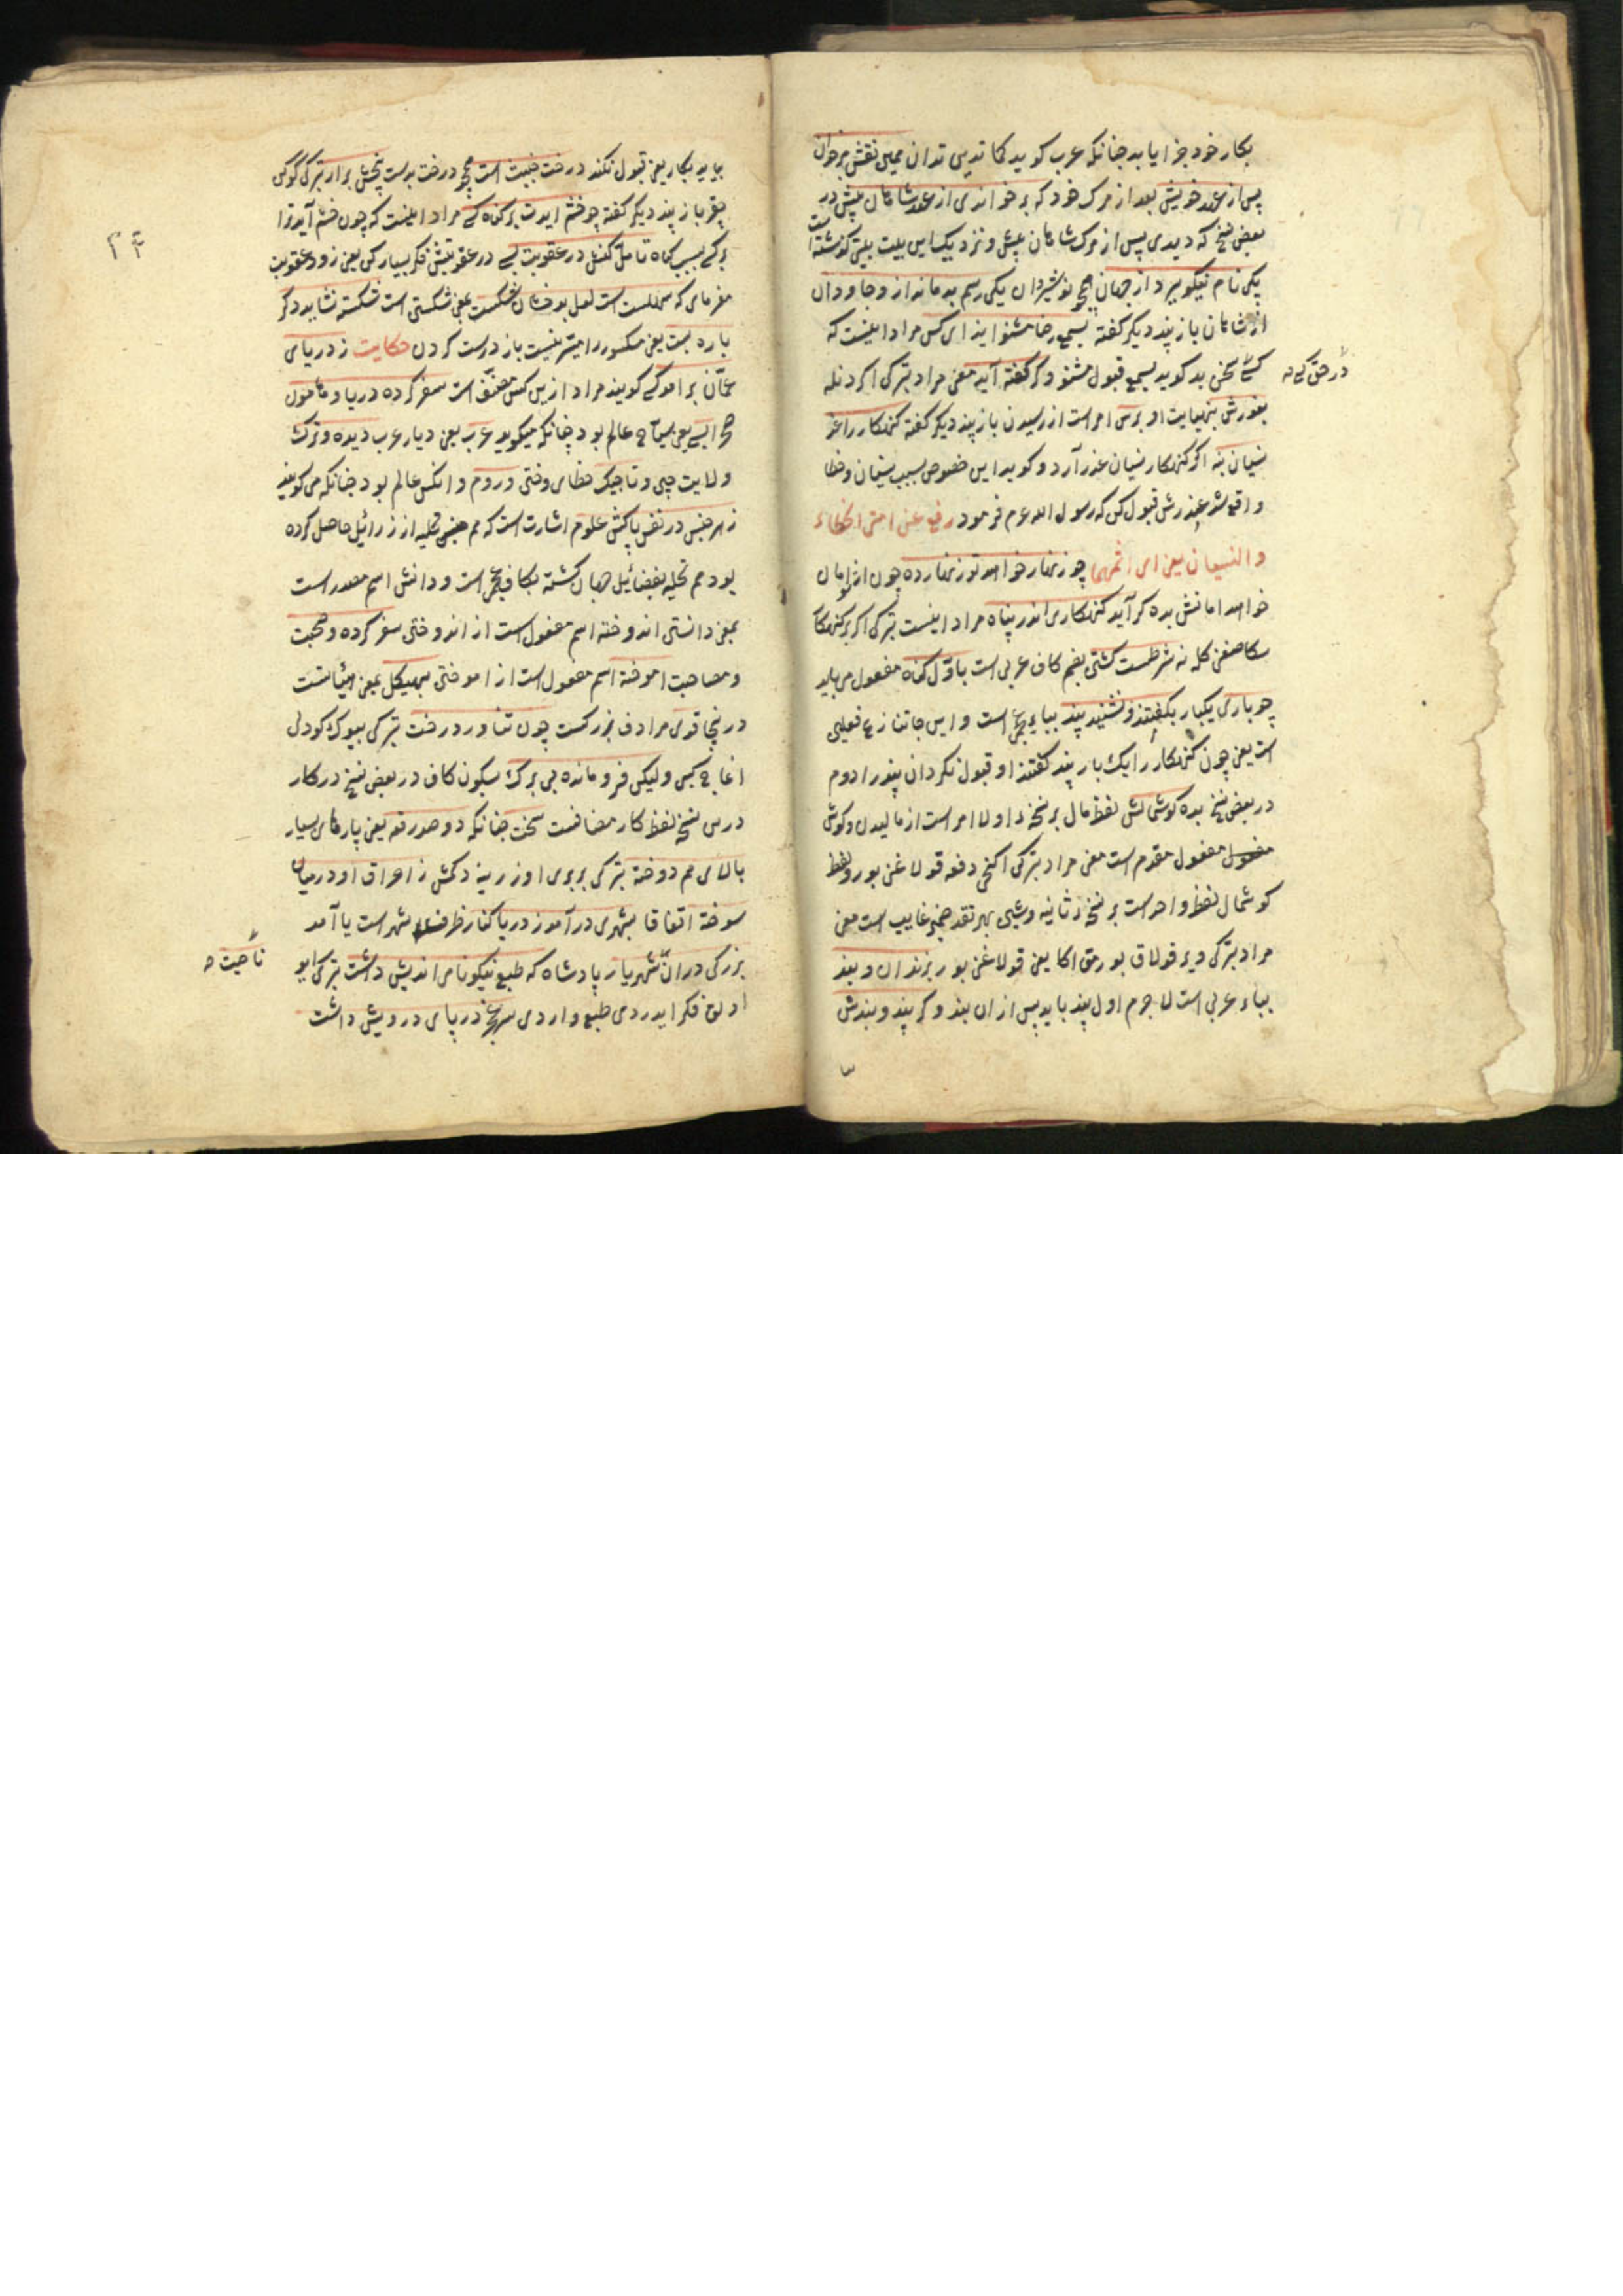 بکار خود جزا یابد جنانکه عرب کوید کما تدین تدان همین نقش برخوان
پس از عهد خویش بعد از مرک خود که برخواندی از عهد شاهان پیش در
بعض نسخ که دیدی پس از مرک شاهان پیش و نزدیک این بیت بیتی کوشته است
یکی نام نیکو ببرد از جهان همچو نوشیروان یکی رسم بد ماند ازو جاودان
از شاهان باز پند دیکر کفته بسمع رضا مشنو ایذای کس مراد اینست که
کسی سخن بد کوید بسمع قبول مشنو وکر کفته آید معنی مراد بترکی اکر دنله
بغورش بنهایت او برس امر است از رسیدن باز پند دیکر کفته کنهکار را عذر
نسیان بنه اکر کنهکار نسیان عذر آرد و کوید این خصوص بسبب نسیان و خطا
واقع شد عذرش قبول کن که رسول الله عم فرمود رفع عن امتی الخطاء
والنسیان یعنی ای اثمهما چو زنهار خواهد تو زنهار ده چون از تو امان
خواهد امانش بده کر آید کنهکاری اندر پناه مراد اینست بترکی اکر بر کنهکار
سکا صغن کله نه شرطست کشتن بضم کاف عربی است باول کناه مفعول می باید
چو باری یکبار بکفتند ونشنید پند بباء عجمی است و این جا تنازع فعلین
است یعنی چون کنهکار را یک بار پند کفتند او قبول نکرد ان پند را دوم
در بعض نسخ بده کوشمالش لفظ مال بر نسخه اولا امر است از مالیدن وکوش
مفعول مقدم است معنی مراد بترکی اکنجی دفعه قولاغن بور ولفظ
کوشمال لفظ واحد است بر نسخه ثانیه وشین بهر تقدیر ضمیر غایب است معنی
مراد بترکی ویر قولاق بورمق اکا یعنی قولاغن بور بزندان و بند
بباء عربی است لا جرم اول پند باید پس از ان بند وکر پند و بندش
در حق کسی صح
بیاید بکار یعنی قبول نکند درخت خبیث است همچو درخت بدست بیخش برار بترکی کوکن
چقر باز پند دیکر کفته چو خشم ایدت بر کناه کسی مراد اینست که چون خشم آید ترا
بر کسی بسبب کناه تامل کنش در عقوبت بسی در عقوبتش فکر بسیار کن یعنی زود عقوبت
مفرمای که سهلست لعل بدخشان شکست یعنی شکستن است شکسته نشاید دکر
باره بست یعنی مکسور را میسر نیست باز درست کردن حکایت ز دریای
عمان برامد کسی کویند مراد ازین کس مصنف است سفر کرده دریا و هامون
بسی یعنی سیاح عالم بود چنانکه میکوید عرب یعنی دیار عرب دیده و ترک
ولایت چین و تاجیک خطای وختن و روم و انکس عالم بود جنانکه می کوید
ز هر جنس در نفس پاکش علوم اشارت است که هم جنس تخلیه از رذائل حاصل کرده
بود هم تحلیه بفضائل جهان کشته بکاف عجمی است و دانش اسم مصدر است
بمعنی دانستن اندوخته اسم مفعول است از اندوختن سفر کرده و صحبت
ومصاحبت اموخته اسم مفعول است از اموختن بهیکل بمعنی هیئاتست
درینجا قوی مرادف بزرکست چون تناور درخت بترکی بیوک کودلی
اغاج کبی ولیکن فرو مانده بی برک بسکون کاف در بعض نسخ در کار
درین نسخ لفظ کار مضافست سخت جنانکه دو صد رقعه یعنی پارهای بسیار
بالای هم دوخته بترکی بربری اوزرینه دکمش ز احراق او در میان
سوخته اتفاقا بشهری درآمد ز دریا کنار ظرف شهر است یا آمد
بزرکی دران شهریار پادشاه که طبع نیکونام اندیش داشت بترکی ایو
ادلوق فکر ایدردی طبع واردی سر عجز در پای درویش داشت
ناحیت صح